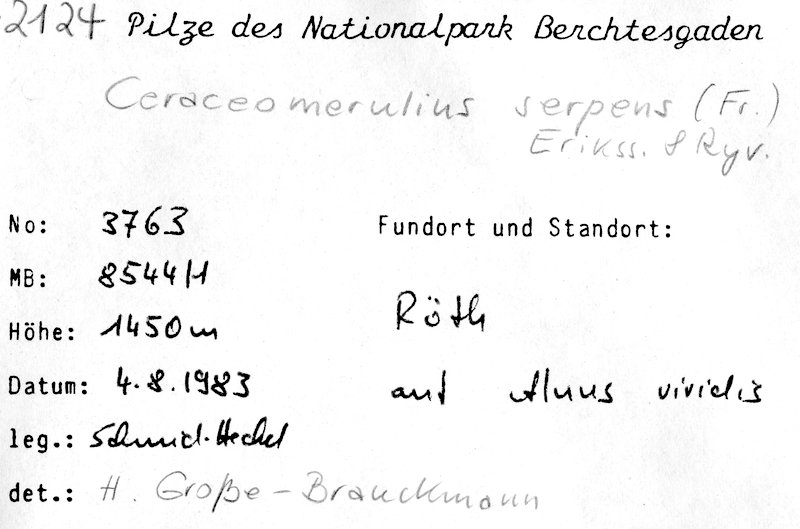 2124 Pilze des Nationalpark Berchtesgaden
Ceraceomerulius serpens (Fr.)
Erikss. & Ryv.
No: 3763 Fundort und Standort:
MB: 8544/1
Höhe: 1450m Röth
Datum: 4.8.1983 auf Alnus viridis
leg.: Schmid-Heckel
det.: H. Große-Brauckmann